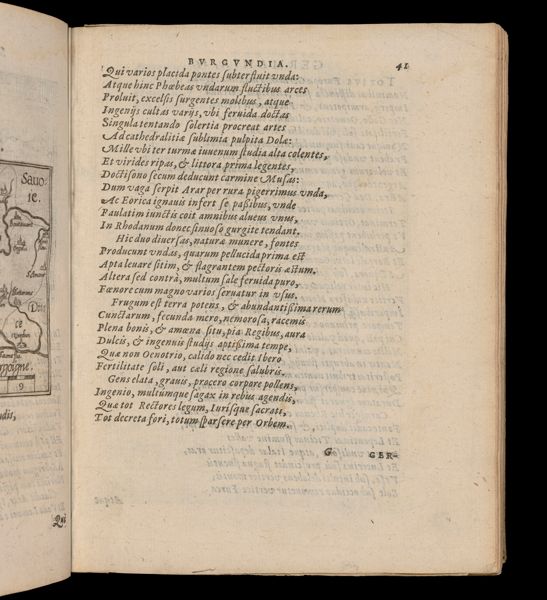 BVRGVNDIA. 41
Qui varios placida pontes subterfluit vnda:
Atque hinc Phœbeas vndarum fluctibus arces
Proluit, excelsis surgentes molibus, atque
Ingenijs cultas varijs, vbi feruida doctas
Singula tentando solertia procreat artes
Ad cathedralitiæ sublimia pulpita Dolæ:
Mille vbi ter turmæ iuuenum studia alta colentes,
Et virides ripas, & littora prima legentes,
Doctisono secum deducunt carmine Musas:
Dum vaga serpit Arar per rura pigerrimus vnda,
Ac Eorica ignauis infert se passibus, vnde
Paulatim iunctis coit amnibus alueus vnus,
In Rhodanum donec sinuoso gurgite tendant.
Hic duo diuersas, naturæ munere, fontes
Producunt vndas, quarum pellucida prima est
Apta leuare sitim, & flagrantem pectoris æstum.
Altera sed contrà, multum sale feruida puro,
Fœnore cum magno varios seruatur in vsus.
Frugum est terra potens, & abundantissima rerum
Cunctarum, fecunda mero, nemorosa, racemis
Plena bonis, & amœna situ, pia Regibus, aura
Dulcis, & ingenuis studijs aptissima tempe,
Quæ non Oenotrio, calido nec cedit Ibero
Fertilitate soli, aut cæli regione salubris.
Gens elata, grauis, procero corpore pollens,
Ingenio, multumque sagax in rebus agendis,
Quæ tot Rectores legum, Iurisque sacrati,
Tot decreta fori, totum sparsere per Orbem.
G GER-
Sauo
ie.
9
Qui